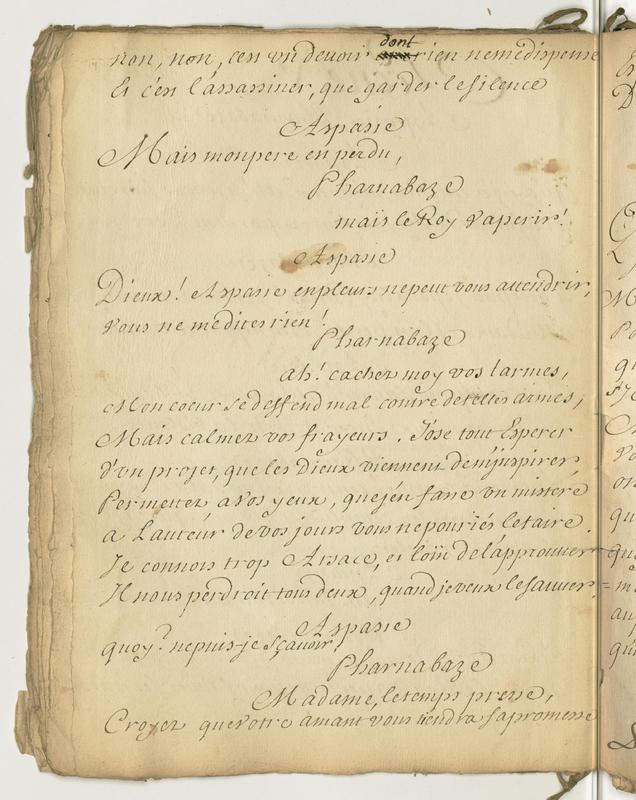 non, non, c'en un devoir dont rien ne me dispense
Et c'en l'assassiner, que garder le silence
Aspasie
Mais mon pere en perdu,
Pharnabaze
mais le Roy va perir!
Aspasie
Dieux! Aspasie en pleurs ne peut vous attendrir,
vous ne me dites rien!
Pharnabaze
ah! cachez moy vos larmes,
Mon coeur se deffend mal contre de telles armes,
Mais calmez vos frayeurs. J'ose tout Esperer
d'un projet, que les Dieux viennent de m'jnspirer,
Permettez a vos yeux, que j'en fasse un mistere
a L'auteur de vos jours vous ne pouriés le taire.
Je connois trop Arsace, et loin de l'approuver
Il nous perdroit tous deux, quand je veux le sauver,
Aspasie
quoy? ne puis-je sçavoir,
Pharnabaze
Madame, le temps presse,
Croyez que votre amant vous tiendra sa promesse